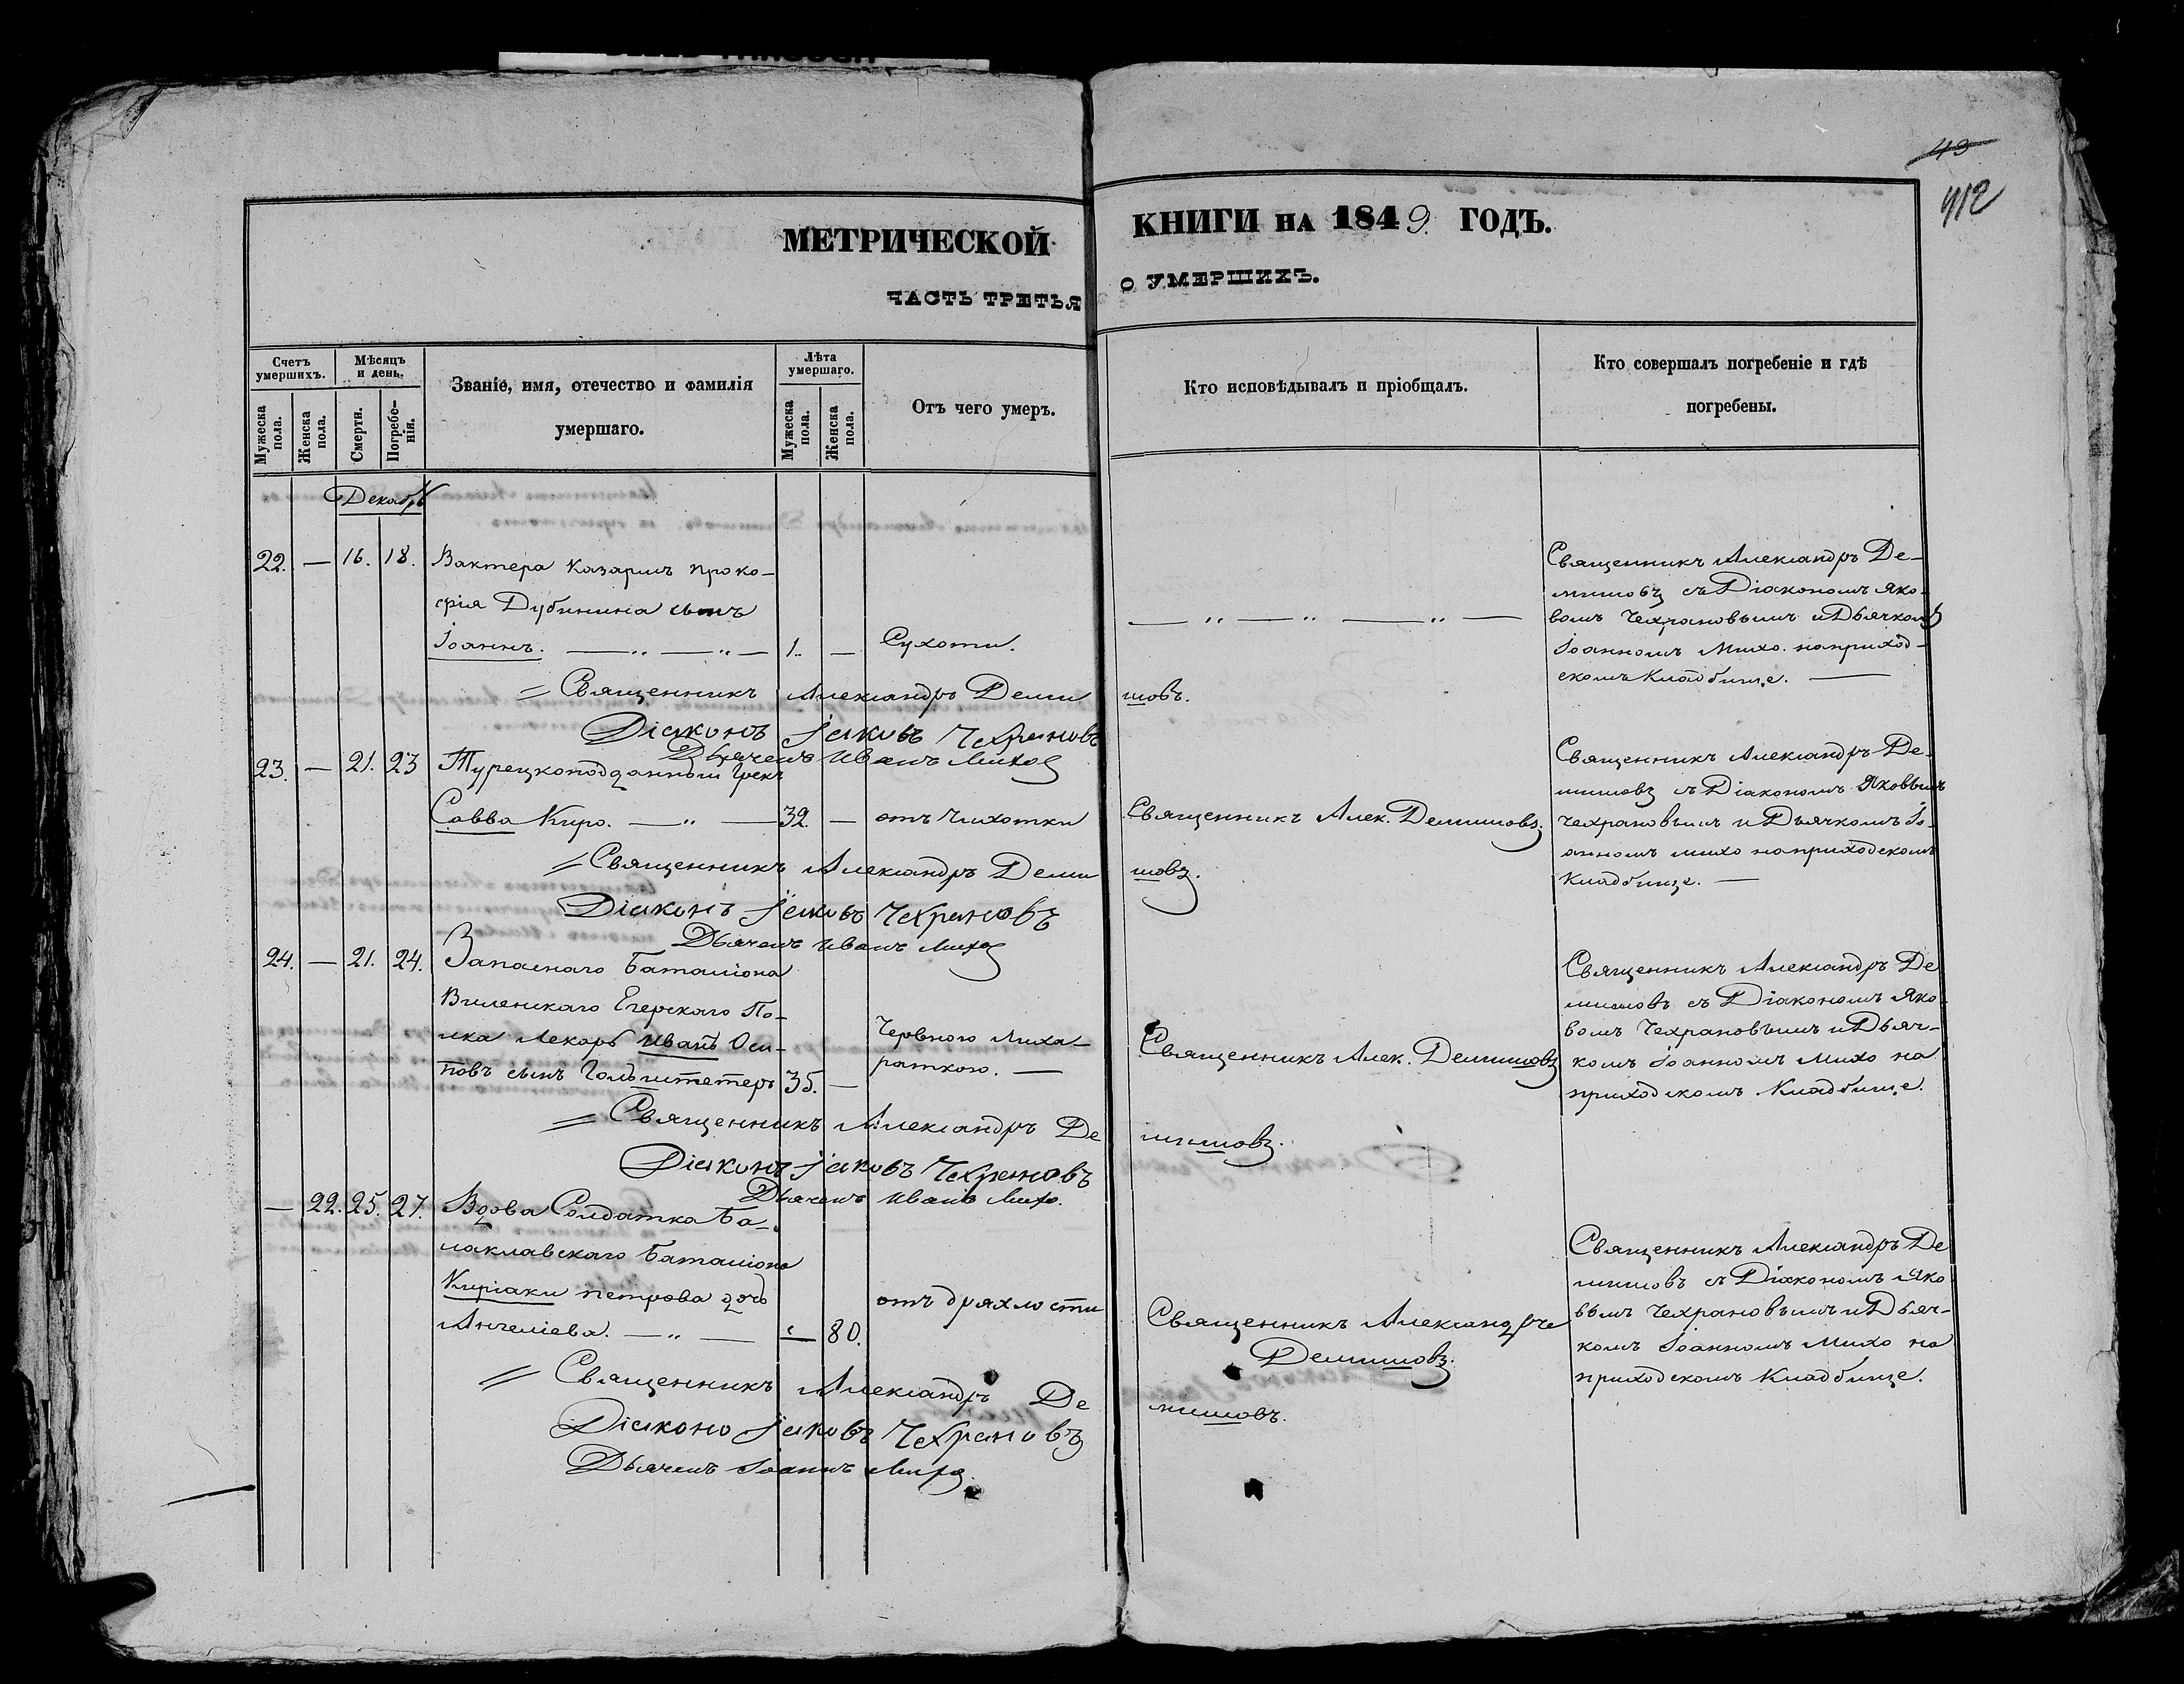 43
412
МЕТРИЧЕСКОЙ КНИГИ НА 1849. ГОДЪ.
ЧАСТЬ ТРЕТЬЯ О УМЕРШИХЪ.
Счетъ умершихъ.
Мѣсяцъ и день.
Званіе, имя, отечество и фамилія умершаго.
Лѣта умершаго.
Отъ чего умеръ.
Кто исповѣдывалъ и пріобщалъ.
Кто совершалъ погребеніе и гдѣ погребены.
Мужеска пола.
Женска пола.
Смерти.
Погребенія.
Мужеска пола.
Женска пола.
Декабрь
22. — 16. 18. Вахтера Казармъ Проко-
фія Дубинина сынъ
Іоаннъ. — „ — „ — 1. — Сухоти.
— „ — „ — „ —
Священникъ Александръ Де-
мишовъ съ Діакономъ Яко-
вомъ Чехрановымъ и Дьячкомъ
Іоанномъ Михо. на приход-
скомъ Кладбище. —
= Священникъ Александръ Деми шовъ.
Діаконъ Іаковъ Чехрановъ
Дьячекъ Иванъ Михо
23. — 21. 23 Турецкоподданный Грекъ
Савва Киро. — „ — 32. — отъ Чихотки
Священникъ Алек. Демишовъ.
Священникъ Александръ Де-
мишовъ съ Діакономъ Яковымъ
Чехрановымъ и Дьячкомъ Іо-
анномъ Михо на приходскомъ
Кладбище. —
= Священникъ Александръ Деми шовъ.
Діаконъ Іаковъ Чехрановъ
Дьячекъ Иванъ Михо
24. — 21. 24. Запаснаго Баталіона
Виленскаго Егерскаго По-
лка Лекарь Иванъ Оси-
повъ сынъ Гольштетеръ 35. —
Священникъ Алек. Демишовъ
Священникъ Александръ Де
мишовъ съ Діакономъ Яко-
вомъ Чехрановымъ и Дьяч-
комъ Іоанномъ Михо на
приходскомъ Кладбище.
= Священникъ Александръ Де мишовъ.
Діаконъ Іаковъ Чехрановъ
Дьячекъ Иванъ Михо.
— 22. 25. 27. Вдова Солдатка Ба-
лаклавскаго Баталіона
Киріаки Петрова дочь
Ангеліева. — „ — — 80. отъ дряхлости
Священникъ Александръ
Демишовъ.
Священникъ Александръ Де
мишовъ съ Діакономъ Яко
вымъ Чехрановымъ и Дьяч-
комъ Іоанномъ Михо на
приходскомъ Кладбище.
= Священникъ Александръ Де мишовъ.
Діаконъ Іаковъ Чехрановъ
Дьячекъ Іоаннъ Михо.